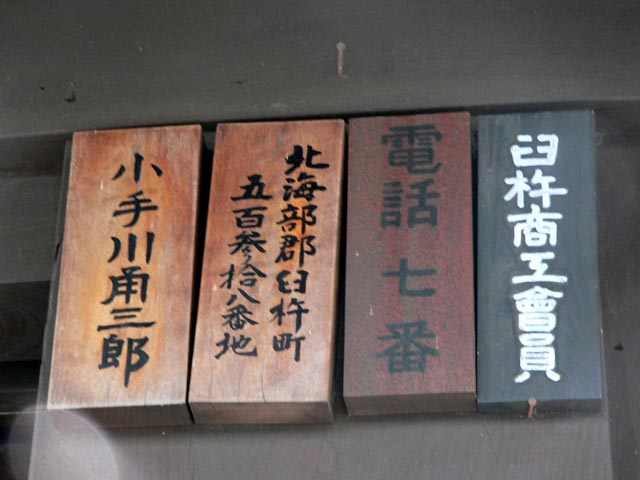 臼杵商工會員
電話七番
北海部郡臼杵町
五百参拾八番地
小手川甬三郎